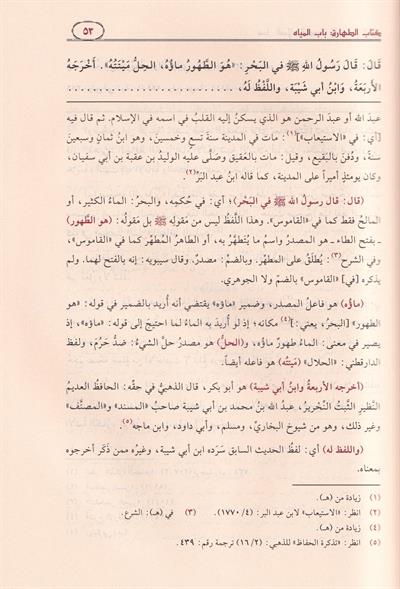 كتاب الطهارة: باب المياه
٥٣
قَالَ: قَالَ رَسُولُ اللهِ ﷺ في البَحْرِ: «هُوَ الطَّهُورُ مَاؤُهُ، الحِلُّ مَيْتَتُهُ». أَخْرَجَهُ
الأَرْبَعَةُ، وَابْنُ أَبي شَيْبَة، واللَّفْظُ لَهُ،
عبدَ الله أو عبدَ الرحمن هو الذي يسكنُ إليه القلبُ في اسمه في الإسلام. ثم قال فيه
[أي: في «الاستيعاب»](١): مات في المدينة سنةَ تسعٍ وخمسين، وهو ابنُ ثمانٍ وسبعين
سنةً، ودُفنَ بالبَقيع، وقيل: مات بالعَقيق وصَلَّى عليه الوليدُ بن عقبة بن أبي سفيان،
وكان يومئذٍ أميراً على المدينة، كما قاله ابنُ عبد البَرِّ(٢).
(قال: قال رسولُ الله ﷺ في البَحْرِ)؛ أي: في حُكمِه، والبحرُ: الماءُ الكثير، أو
المالحُ فقط كما في «القاموس». وهذا اللَّفظُ ليس من مَقوله ﷺ بل مَقولُه: (هو الطَّهور)
ـ بفتح الطاء ـ هو المصدرُ واسمُ ما يُتطهَّرُ به، أو الطاهرُ المُطهِّر كما في «القاموس»،
وفي الشرح(٣): يُطلَقُ على المطهِّر. وبالضم: مصدرٌ. وقال سيبويه: إنه بالفتح لهما. ولم
يذكره [في] «القاموس» بالضمِّ ولا الجوهري.
(ماؤُه) هو فاعلُ المصدر، وضمير «ماؤه» يقتضي أنه أُريد بالضمير في قوله: «هو
الطهور» [البحرُ، يعني:](٤) مكانه؛ إذ لو أُريدَ به الماءُ لما احتيجَ إلى قوله: «ماؤه»، إذ
يصير في معنى: الماءُ طهورٌ ماؤُه، و(الحِلُّ) هو مصدرُ حلَّ الشيءُ: ضدُّ حَرُمَ، ولفظ
الدارقطني: «الحلال» (مَيتتُه) هو فاعله أيضاً.
(أخرجه الأربعةُ وابنُ أبي شيبة) هو أبو بكر، قال الذهبيُّ في حقِّه: الحافظُ العديمُ
النظيرِ الثَّبْتُ النِّحْريرُ، عبدُ الله بنُ محمد بن أبي شيبة صاحبُ «المسند» و«المصنَّف»
وغيرِ ذلك، وهو من شيوخ البخاريِّ، ومسلم، وأبي داود، وابنِ ماجه(٥).
(واللفظ له) أي: لفظُ الحديث السابق سَرَده ابن أبي شيبة، وغيرُه ممن ذُكر أخرجوه
بمعناه.
(١) زيادة من (هـ).
(٢) انظر: «الاستيعاب» لابن عبد البر: (٤/ ١٧٧٠). (٣) في (هـ): الشرع.
(٤) زيادة من (هـ).
(٥) انظر: «تذكرة الحفاظ» للذهبي: (٢/ ١٦) ترجمة رقم: ٤٣٩.